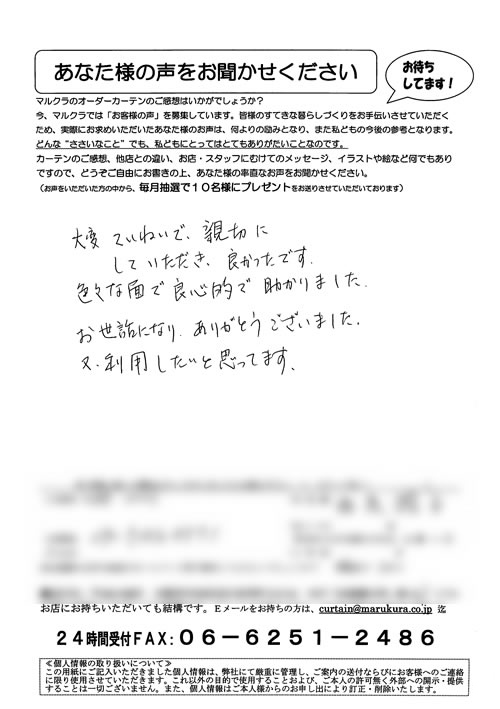 あなた様の声をお聞かせください
お待ち
してます!
マルクラのオーダーカーテンのご感想はいかがでしょうか?
今、マルクラでは「お客様の声」を募集しています。皆様のすてきな暮らしづくりをお手伝いさせていただく
ため、実際にお求めいただいたあなた様のお声は、何よりの励みとなり、また私どもの今後の参考となります。
どんな“ささいなこと”でも、私どもにとってはとてもありがたいことなのです。
カーテンのご感想、他店との違い、お店・スタッフにむけてのメッセージ、イラストや絵など何でもあり
ですので、どうぞご自由にお書きの上、あなた様の率直なお声をお聞かせください。
(お声をいただいた方の中から、毎月抽選で10名様にプレゼントをお送りさせていただいております)
大変 ていねいで、親切に
していただき、良かったです.
色々な面で良心的で助かりました.
お世話になり、ありがとうございました.
又、利用したいと思ってます、
お店にお持ちいただいても結構です。Eメールをお持ちの方は、curtain@marukura.co.jp 迄
24時間受付FAX:06-6251-2486
≪個人情報の取り扱いについて≫
この用紙にご記入いただきました個人情報は、弊社にて厳重に管理し、ご案内の送付ならびにお客様へのご連絡
に限り使用させていただきます。これ以外の目的で使用することおよび、ご本人の許可無く外部への開示・提供
することは一切ございません。また、個人情報はご本人様からのお申し出により訂正・削除いたします。